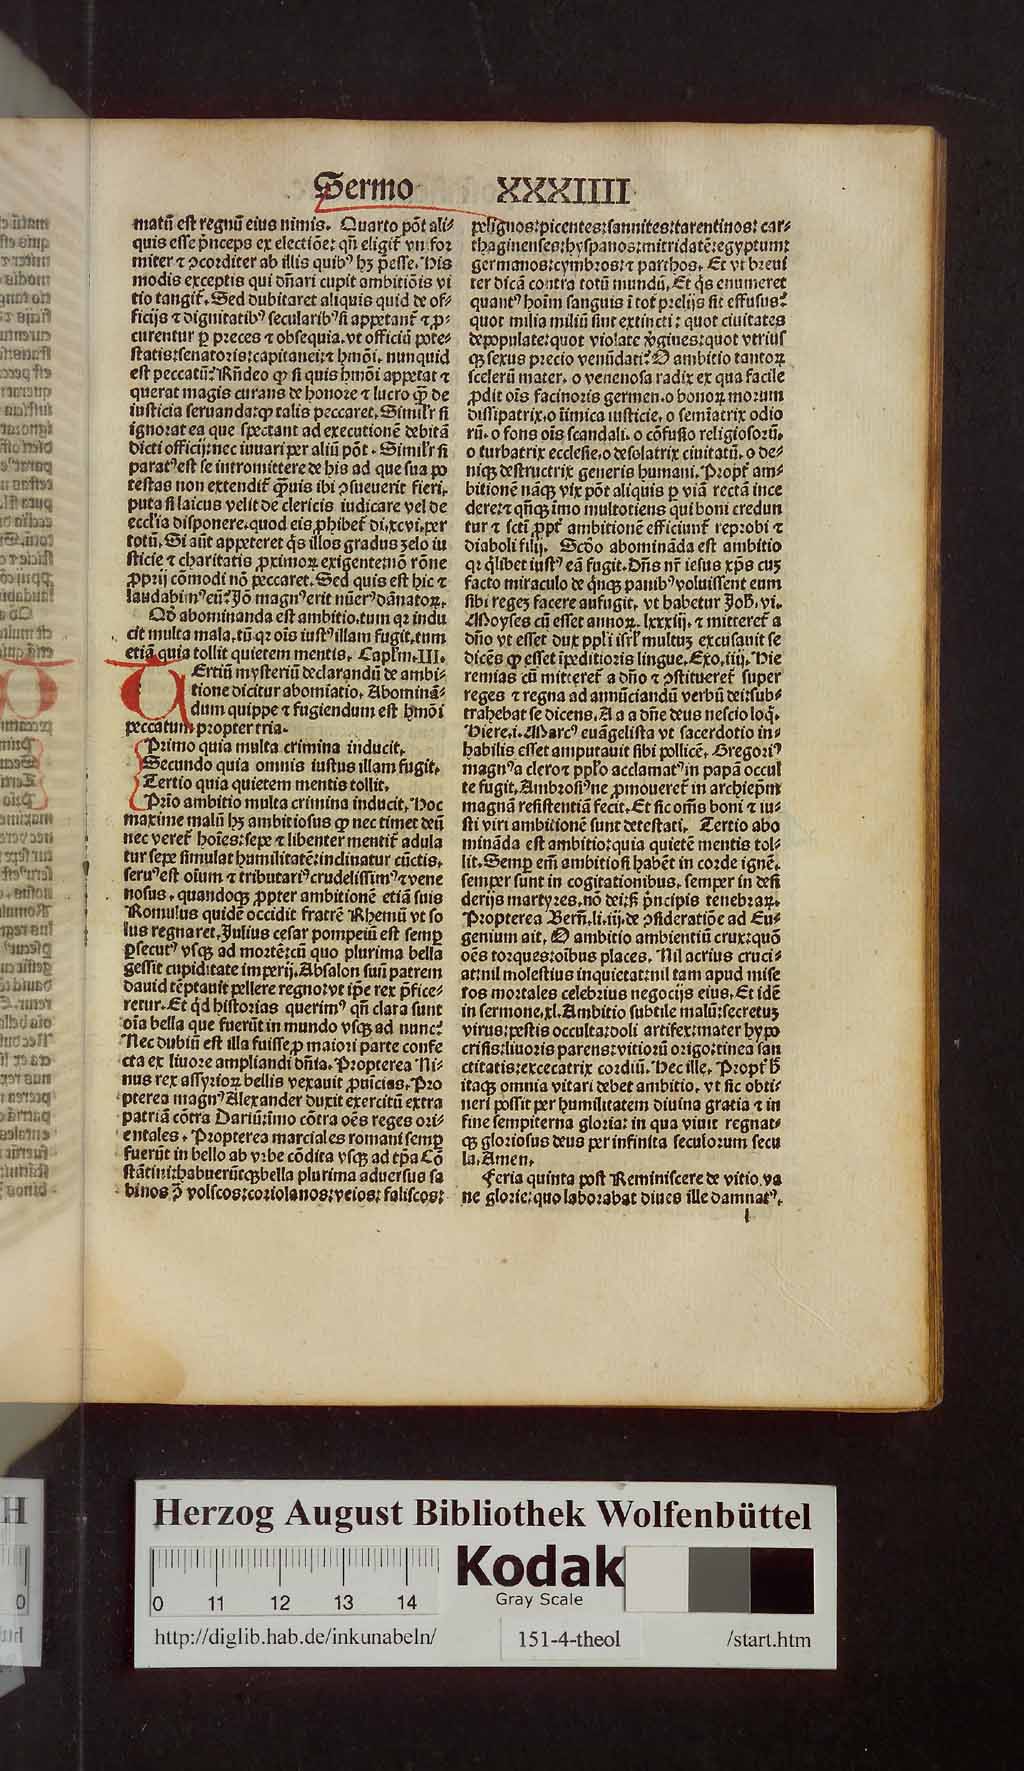 Sermo XXXIIII
matū est regnū eius nimis. Quarto pōt ali-
quis esse p̄nceps ex electiōe: qn̄ eligit᷑ vn for
miter ⁊ ꝯcorditer ab illis quibꝰ hꝫ p̄esse. His
modis exceptis qui dn̄ari cupit ambitiōis vi
tio tangit᷑. Sed dubitaret aliquis quid de of-
ficijs ⁊ dignitatibꝰ secularibꝰ si appetant᷑ ⁊ ꝓ-
curentur ꝑ preces ⁊ obsequia. vt officiū pote-
statis: senatoris: capitanei: ⁊ hmōi. nunquid
est peccatū? Rn̄deo ꝙ si quis hmōi appetat ⁊
querat magis curans de honore ⁊ lucro ꝙ̄ de
iusticia seruanda: ꝙ talis peccaret. Simil'r si
ignorat ea que spectant ad executionē debitā
dicti officij: nec iuuari per aliū pōt. Simil'r si
paratꝰ est se intromittere de his ad que sua po
testas non extendit᷑ ꝙ̄uis ibi ꝯsueuerit fieri.
puta si laicus velit de clericis iudicare vel de
eccl'ia disponere. quod eis ꝓhibet᷑ di. xcvi. per
totū. Si aūt appeteret q̄s illos gradus zelo iu
sticie ⁊ charitatis ꝓximoꝝ exigente: nō rōne
ꝓprij cōmodi nō peccaret. Sed quis est hic ⁊
laudabimꝰ eū? Iō magnꝰ erit nūerꝰ dānatoꝝ.
Qd̄ abominanda est ambitio. tum qꝛ indu
cit multa mala. tū qꝛ oīs iustꝰ illam fugit. tum
etiā quia tollit quietem mentis. Capl'm. III.
TErtiū mysteriū declarandū de ambi-
tione dicitur abomīatio. Abominā-
dum quippe ⁊ fugiendum est hmōi
peccatum propter tria.
Primo quia multa crimina inducit.
Secundo quia omnis iustus illam fugit.
Tertio quia quietem mentis tollit.
Prīo ambitio multa crimina inducit. Hoc
maxime malū hꝫ ambitiosus ꝙ nec timet deū
nec veret᷑ hoīes: sepe ⁊ libenter mentit᷑ adula
tur sepe simulat humilitatē: inclinatur cūctis.
seruꝰ est oīum ⁊ tributariꝰ crudelissimꝰ ⁊ vene
nosus. quandoqꝫ ꝓpter ambitionē etiā suis
Romulus quidē occidit fratrē Rhemū vt so
lus regnaret. Julius cesar pompeiū est semꝑ
ꝑsecutꝰ vsqꝫ ad mortē: cū quo plurima bella
gessit cupiditate imperij. Absalon suū patrem
dauid tēptauit pellere regno: vt ip̄e rex p̄fice-
retur. Et q̄d historias querimꝰ qn̄ clara sunt
oīa bella que fuerūt in mundo vsqꝫ ad nunc?
Nec dubiū est illa fuisse ꝓ maiori parte confe
cta ex liuore ampliandi dn̄ia. Propterea Ni-
nus rex assyrioꝝ bellis vexauit ꝓuīcias. Pro
pterea magnꝰ Alexander duxit exercitū extra
patriā cōtra Dariū: imo cōtra oēs reges ori-
entales. Propterea marciales romani semꝑ
fuerūt in bello ab vrbe cōdita vsqꝫ ad tp̄a Cō
stātini: habuerūtqꝫ bella plurima aduersus sa
binos ꝯ̄ volscos: coriolanos: veios: faliscos:
pelignos: picentes: sannites: tarentinos: car-
thaginenses: hyspanos: mitridatē: egyptum:
germanos: cymbros: ⁊ parthos. Et vt breui
ter dicā contra totū mundū. Et q̄s enumeret
quantꝰ hoīm sanguis ī tot prelijs sit effusus?
quot milia miliū sint extincti: quot ciuitates
depopulate: quot violate v̄gines: quot vtrius
qꝫ sexus precio venūdati? O ambitio tantoꝝ
scelerū mater. o venenosa radix ex qua facile
ꝓdit oīs facinoris germen. o bonoꝝ morum
dissipatrix. o īimica iusticie. o semīatrix odio
rū. o fons oīs scandali. o cōfusio religiosorū.
o turbatrix ecclesie. o desolatrix ciuitatū. o de-
niqꝫ destructrix generis humani. Propt᷑ am-
bitionē nāqꝫ vix pōt aliquis ꝑ viā rectā ince
dere: ⁊ qn̄qꝫ īmo multotiens qui boni credun
tur ⁊ scti ꝓpt᷑ ambitionē efficiunt᷑ reprobi ⁊
diaboli filij. Scdō abomināda est ambitio
qꝛ q̄libet iustꝰ eā fugit. Dn̄s nr̄ iesus xp̄s cuꝫ
facto miraculo de q̄nqꝫ panibꝰ voluissent eum
sibi regeꝫ facere aufugit. vt habetur Joh. vi.
Moyses cū esset annoꝝ. lxxxiij. ⁊ mitteret᷑ a
dn̄o vt esset dux pp̄li isrl' multuꝫ excusauit se
dicēs ꝙ esset īpeditioris lingue. Exo. iiij. Hie
remias cū mitteret᷑ a dn̄o ⁊ ꝯstitueret᷑ super
reges ⁊ regna ad annūciandū verbū dei: sub-
trahebat se dicens. A a a dn̄e deus nescio loq̄.
Hiere. i. Marcꝰ euāgelista vt sacerdotio in-
habilis esset amputauit sibi pollicē. Gregoriꝰ
magnꝰ a clero ⁊ pp̄lo acclamatꝰ in papā occul
te fugit. Ambrosiꝰ ne ꝓmoueret᷑ in archiep̄m
magnā resistentiā fecit. Et sic oēs boni ⁊ iu-
sti viri ambitionē sunt detestati. Tertio abo
mināda est ambitio: quia quietē mentis tol-
lit. Semꝑ em̄ ambitiosi habēt in corde ignē.
semper sunt in cogitationibus. semper in desi
derijs martyres. nō dei: sꝫ p̄ncipis tenebraꝝ.
Propterea Bern̄. li. iij. de ꝯsideratiōe ad Eu-
genium ait. O ambitio ambientiū crux: quō
oēs torques: oībus places. Nil acrius cruci-
at: nil molestius inquietat: nil tam apud mise
ros mortales celebrius negocijs eius. Et idē
in sermone. xl. Ambitio subtile malū: secretuꝫ
virus: pestis occulta: doli artifex: mater hypo
crisis: liuoris parens: vitiorū origo: tinea san
ctitatis: excecatrix cordiū. Hec ille. Propt᷑ h̄
itaqꝫ omnia vitari debet ambitio. vt sic obti-
neri possit per humilitatem diuina gratia ⁊ in
fine sempiterna gloria: in qua viuit regnat-
qꝫ gloriosus deus per infinita seculorum secu
la. Amen.
Feria quinta post Reminiscere de vitio va
ne glorie: quo laborabat diues ille damnatꝰ.
l
Herzog August Bibliothek Wolfenbüttel
0 11 12 13 14
Kodak
Gray Scale
http://diglib.hab.de/inkunabeln/ 151-4-theol /start.htm